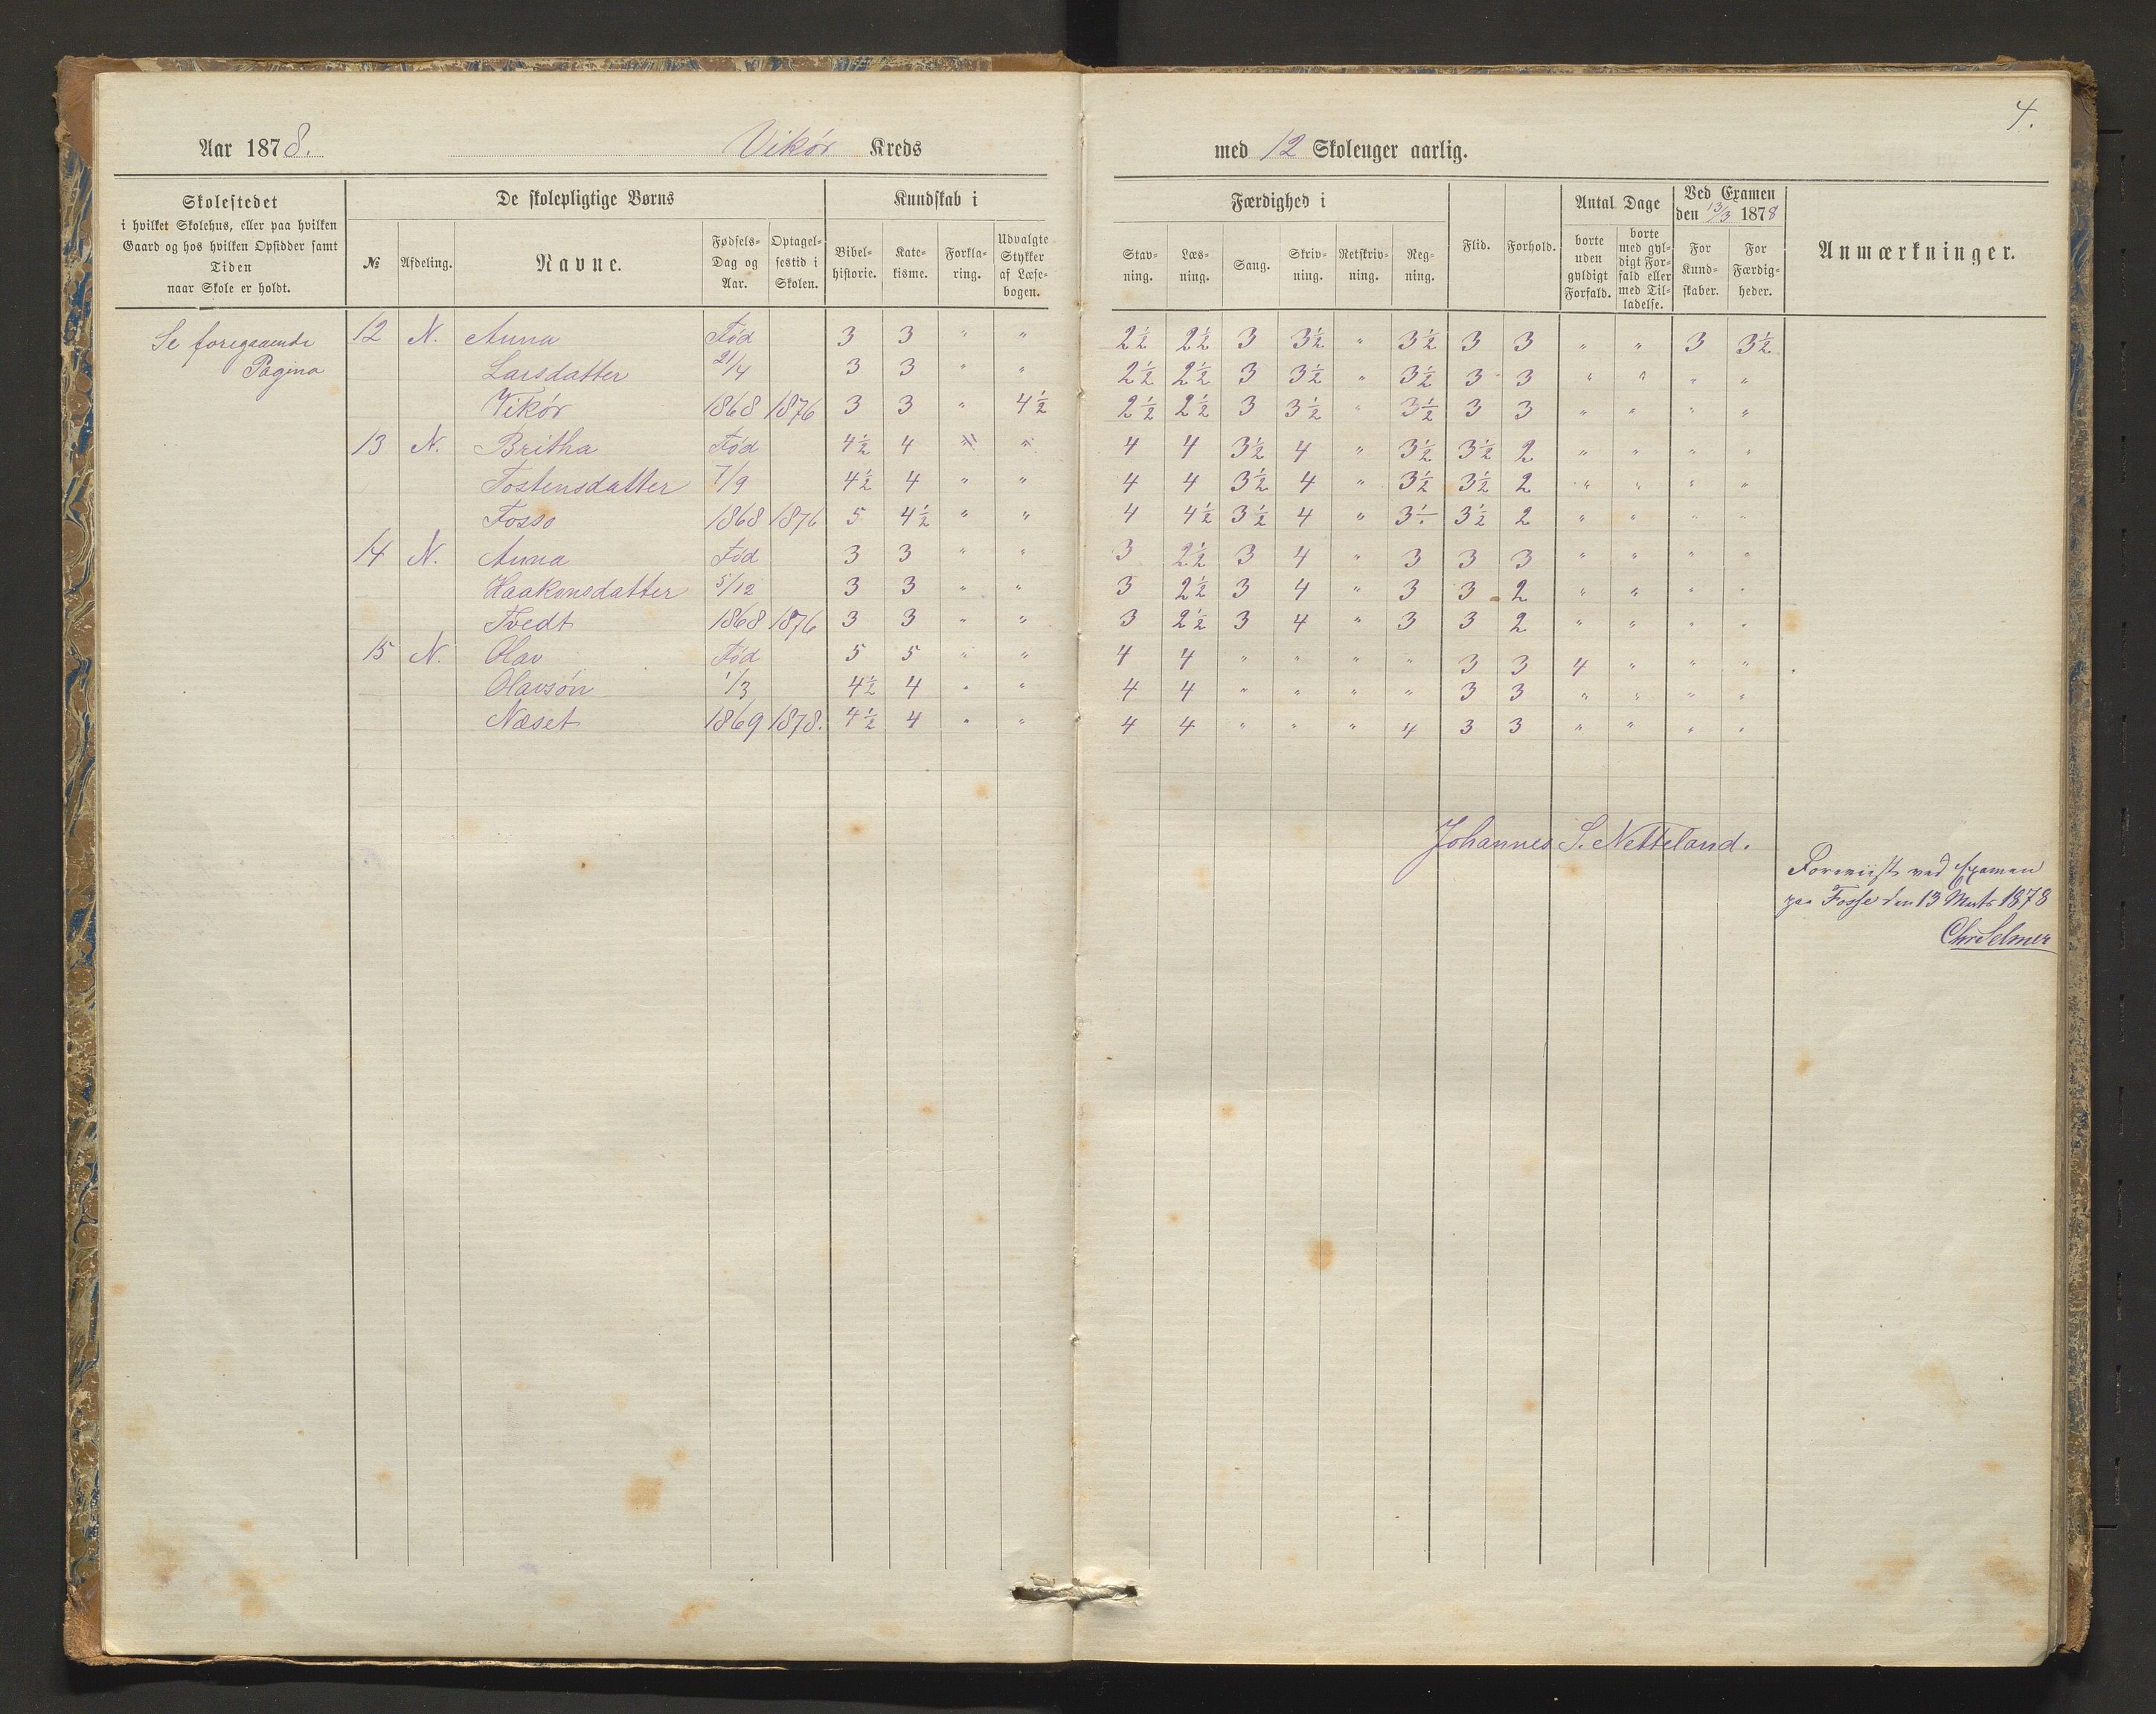 4.
Aar 1878. Vikór Kreds med 12 Skoleuger aarlig.
Skolestedet
i hvilket Skolehus, eller paa hvilken
Gaard og hos hvilken Opsidder samt
Tiden
naar Skole er holdt.
De skolepligtige Børns
№ Afdeling. Navne. Fødsels-Dag og Aar. Optagel-sestid i Skolen.
Kundskab i
Bibel-historie. Kate-kisme. Forkla-ring. Udvalgte Stykker af Læse-bogen.
Færdighed i
Stav-ning. Læs-ning. Sang. Skriv-ning. Retskriv-ning. Reg-ning.
Flid. Forhold.
Antal Dage
borte uden gyldigt Forfald. borte med gyl-digt For-fald eller med Til-ladelse.
Ved Examen
den 13/3 1878
For Kund-skaber. For Færdig-heder.
Anmærkninger.
Se foregaaende 12 N. Anna Fód 3 3 " " 2½ 2½ 3 3½ " 3½ 3 3 " " 3 3½
Pagina Larsdatter 21/4 3 3 " " 2½ 2½ 3 3½ " 3½ 3 3 " " " "
Vikór 1868 1876 3 3 " 4½ 2½ 2½ 3 3½ " 3½ 3 3 " " " "
13 N. Britha Fód 4½ 4 " " 4 4 3½ 4 " 3½ 3½ 2 " " " "
Tostensdatter 7/9 4½ 4 " " 4 4 3½ 4 " 3½ 3½ 2 " " " "
Fosso 1868 1876 5 4½ " " 4 4½ 3½ 4 " 3½ 3½ 2 " " " "
14 N. Anna Fód 3 3 " " 3 2½ 3 4 " 3 3 3 " " " "
Haakonsdatter 5/12 3 3 " " 3 2½ 3 4 " 3 3 2 " " " "
Tvedt 1868 1876 3 3 " " 3 2½ 3 4 " 3 3 2 " " " "
15 N. Olav Fód 5 5 " " 4 4 " " " " 3 3 4 " " "
Olavsón 1/3 4½ 4 " " 4 4 " " " " 3 3 " " " "
Næset 1869 1878. 4½ 4 " " 4 4 " " " 4 3 3 " " " "
Johannes S. Netteland.
Foreviist ved Examen
paa Fosse den 13 Marts 1878
Chr Selmer